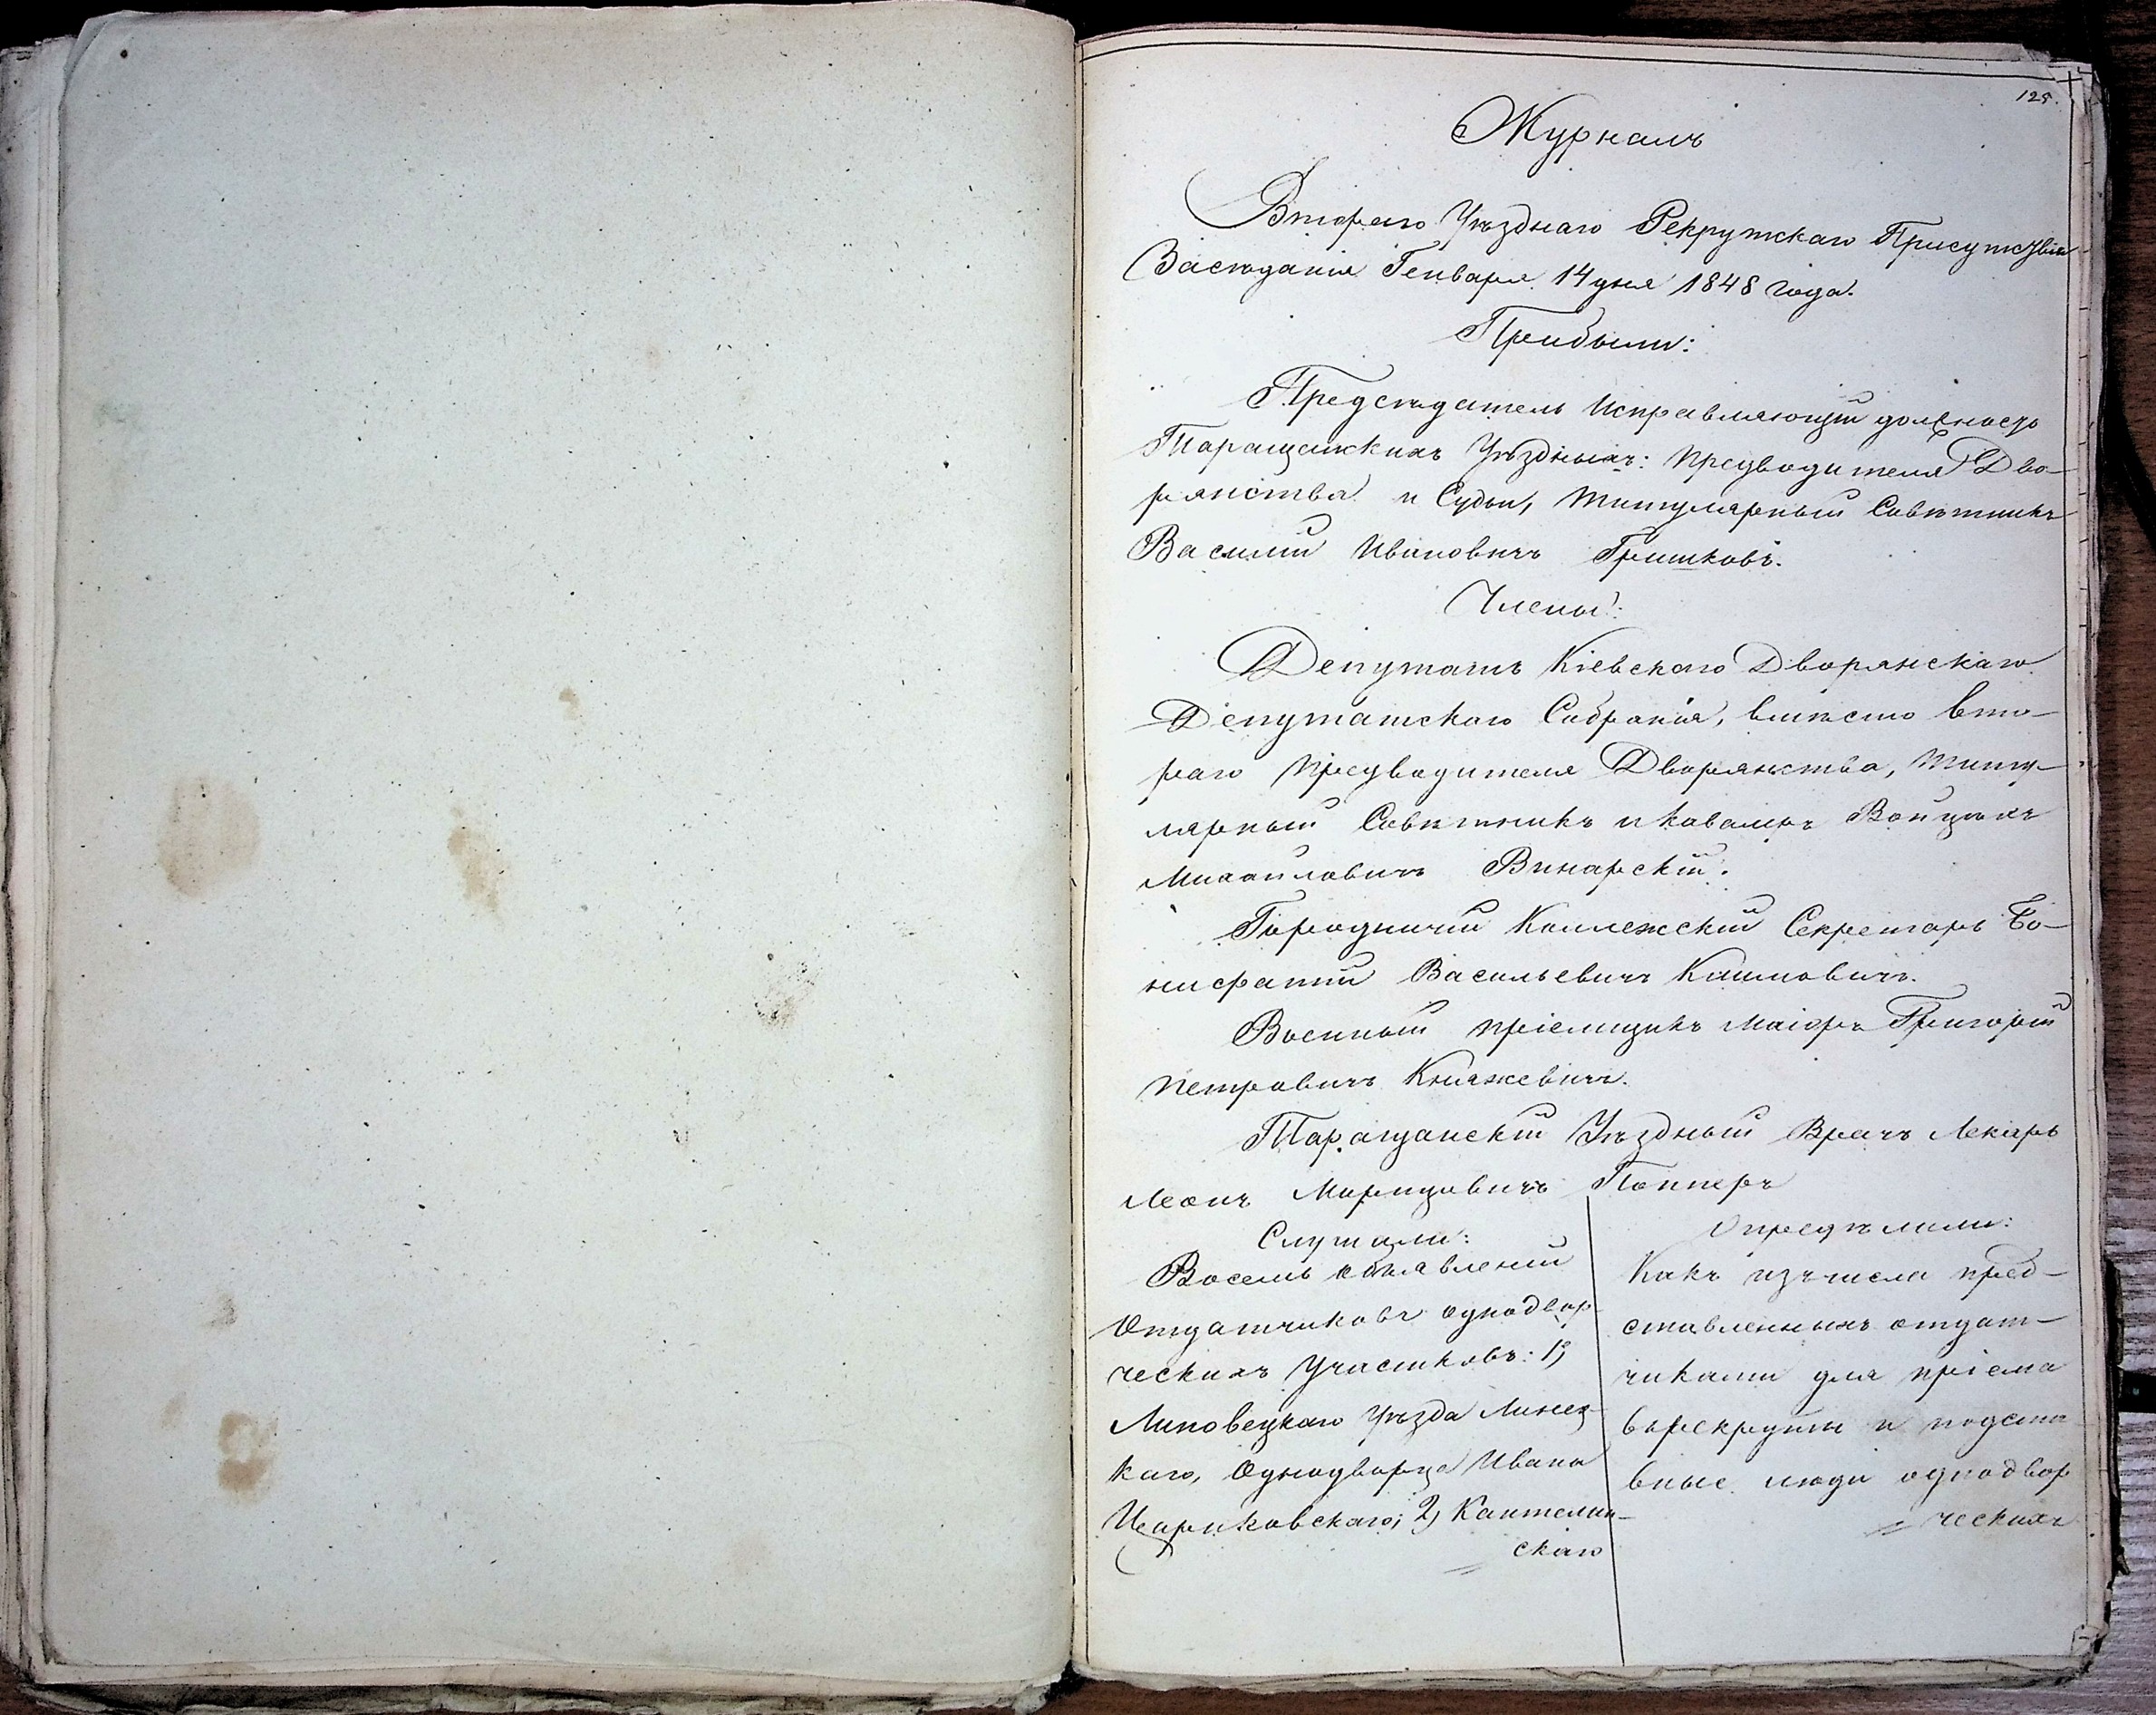 125.
Журналъ
Втораго Уѣзднаго Рекрутскаго Присутствія
Засѣданія Генваря 14 дня 1848 года.
Прибыли:
Предсѣдатель Исправляющій должность
Таращанскихъ Уѣздныхъ: Предводителя Дво-
рянства и Судьи, Титулярный Совѣтникъ
Василій Ивановичъ Гришковъ.
Члены:
Депутатъ Кіевскаго Дворянскаго
Депутатскаго Собранія, вмѣсто вто-
раго Предводителя Дворянства, Титу-
лярный Совѣтникъ и Кавалеръ Войцѣхъ
Михайловичъ Винарскій.
Городничій Коллежскій Секретарь Бо-
нифатій Васильевичъ
Военный пріемщикъ Маіоръ Григорій
Петровичъ Княжевичъ.
Таращанскій Уѣздный Врачъ Лекарь
Леонъ Морицовичъ Попперъ
Слушали:
Восемь объявленій
Отдатчиковъ однодвор
ческихъ Участковъ: 1,
Липовецкаго Уѣзда Линец-
каго, Однодворца Ивана
2,
скаго
Опредѣлили:
Какъ изъ числа пред-
ставленныхъ отдат-
чиками для пріема
въ рекруты и подста
вные люди однодвор
ческихъ